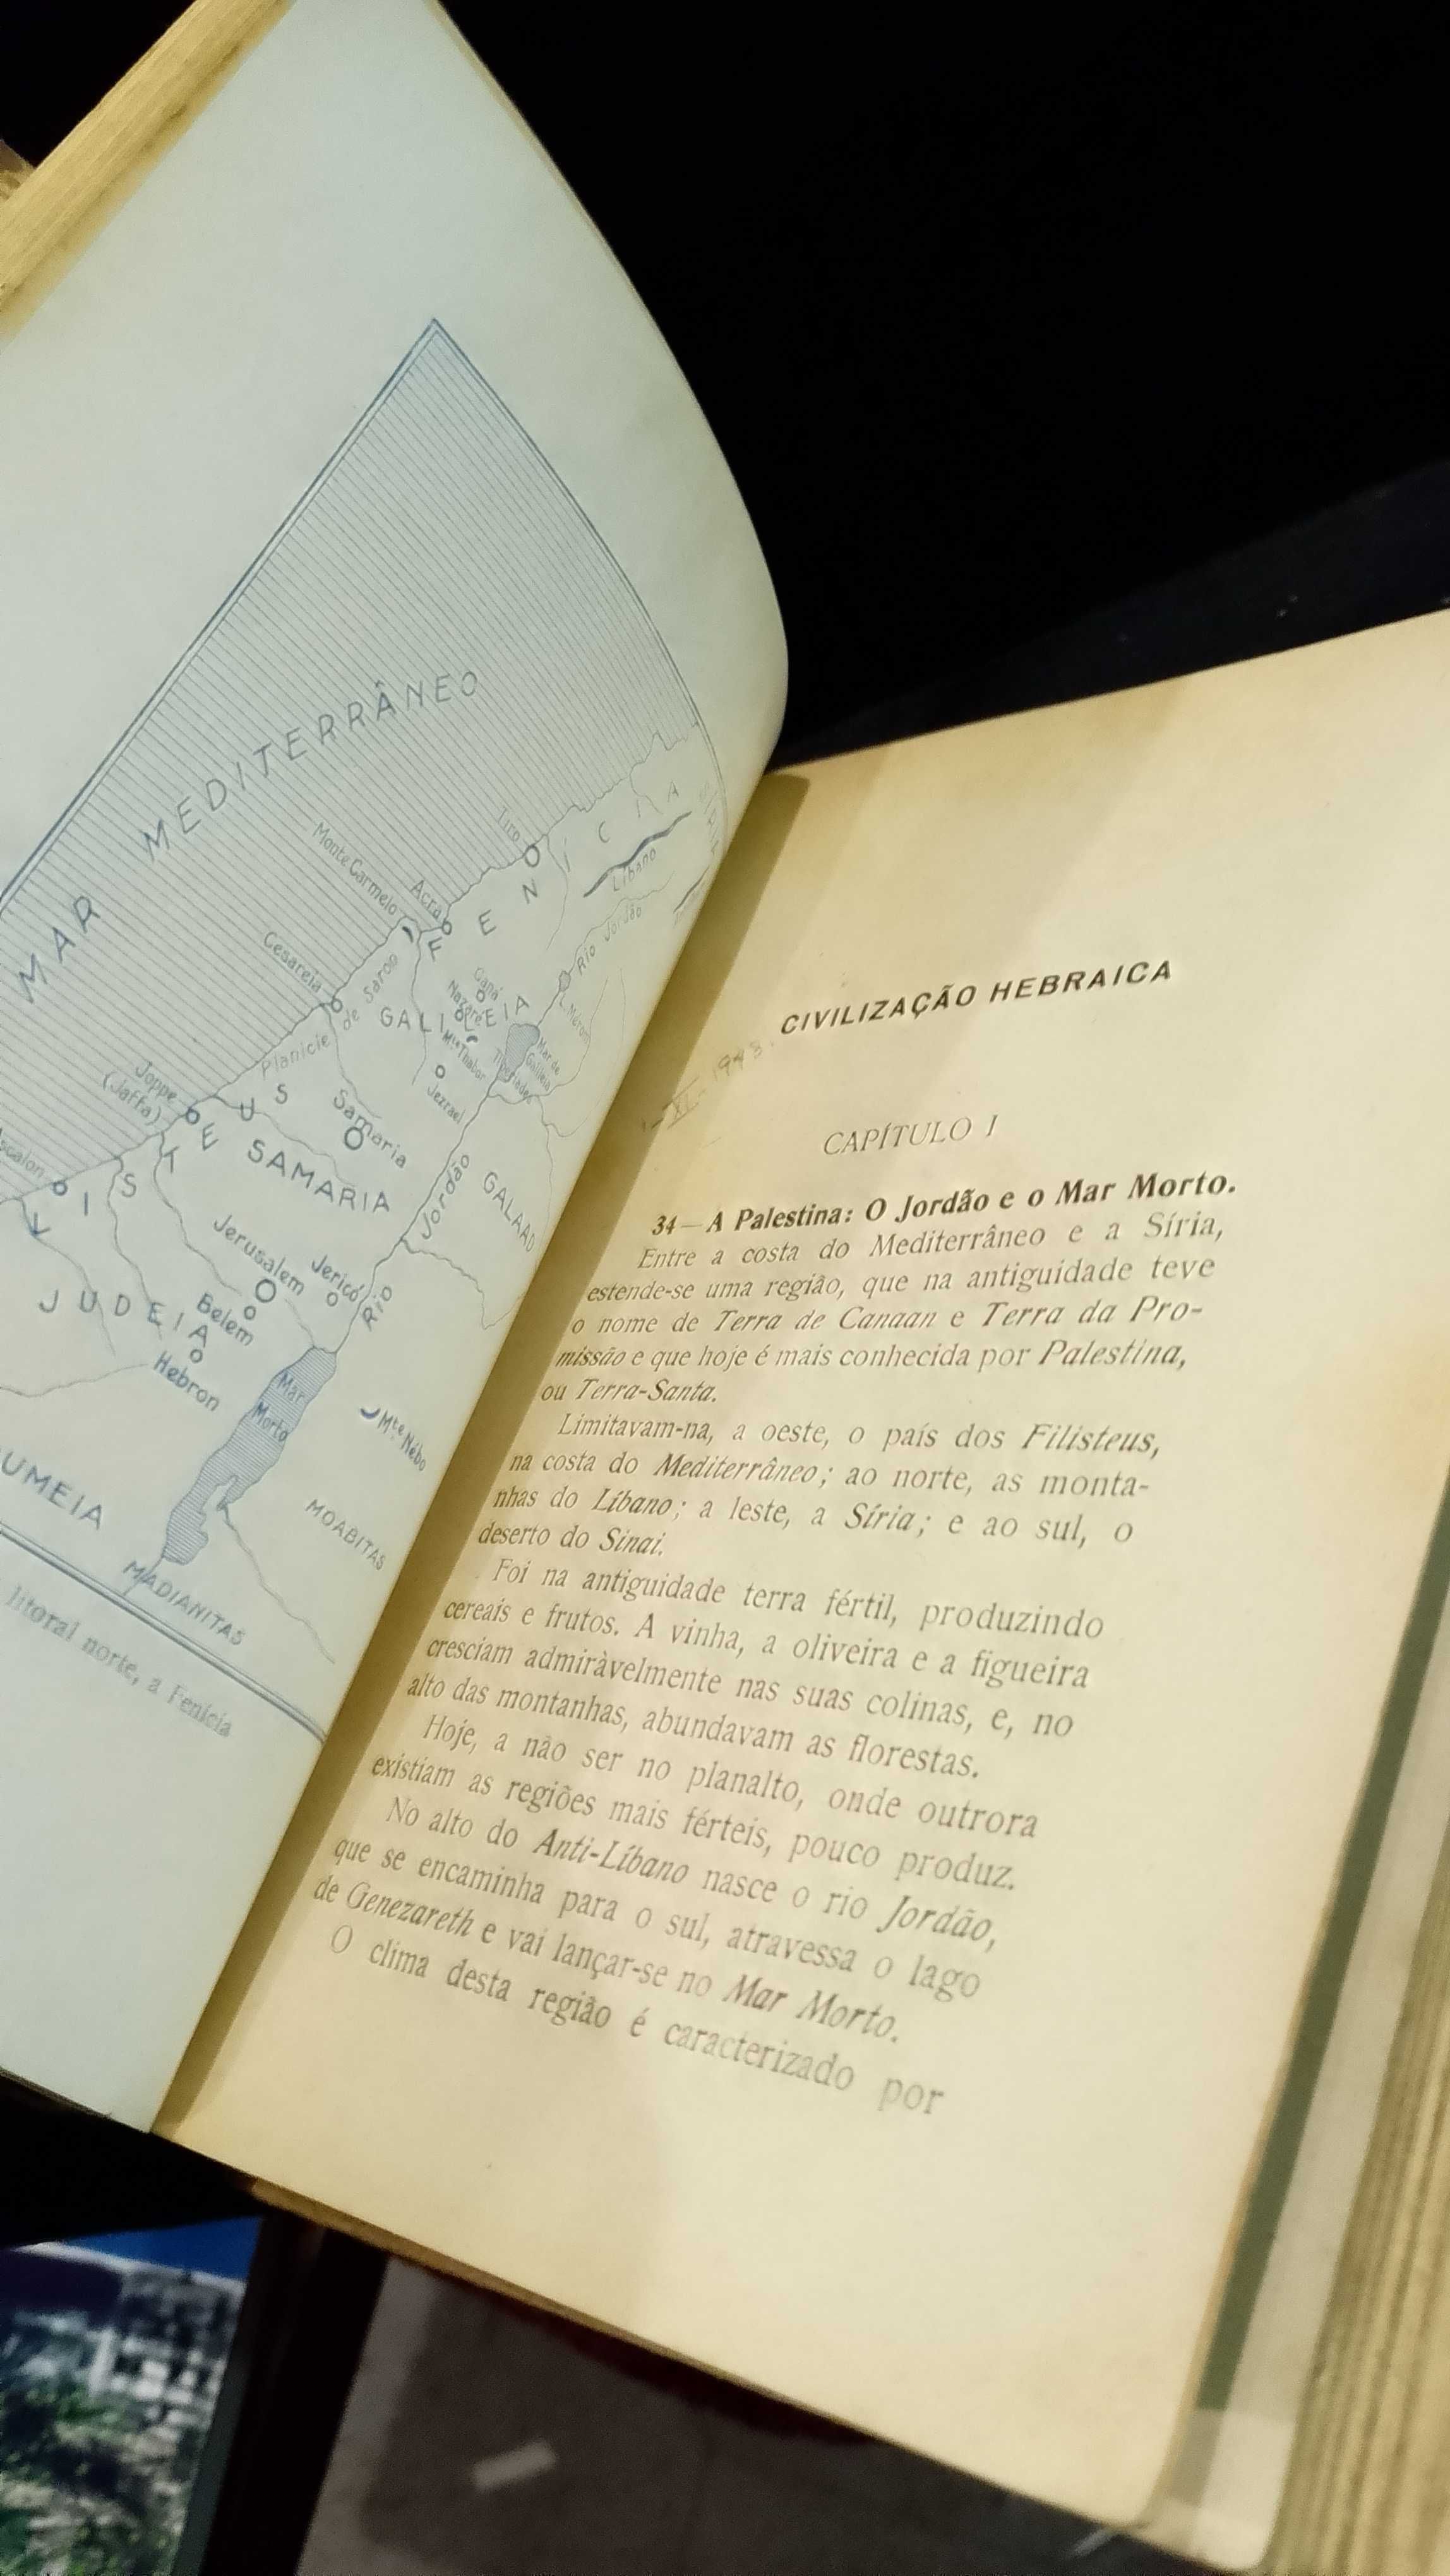 MAR MEDITERRÂNEO
Tiro
FENÍCIA
Líbano
Monte Carmelo
Acra
Rio Jordão
Cesareia
Planície de Saron
GALILEIA
Caná
Nazaré
Mte Thabor
Tiberíades
Mar de
Galileia
L. Merom
Jezrael
Joppe
(Jaffa)
Samaria
SAMARIA
GALAAD
Jordão
Rio
Jerusalem
Jericó
Belem
JUDEIA
Hebron
Mar
Morto
Mte Nébo
UMEIA
MOABITAS
MADIANITAS
litoral norte, a Fenícia
CIVILIZAÇÃO HEBRAICA
CAPÍTULO I
34—A Palestina: O Jordão e o Mar Morto.
Entre a costa do Mediterrâneo e a Síria,
estende-se uma região, que na antiguidade teve
o nome de Terra de Canaan e Terra da Pro-
missão e que hoje é mais conhecida por Palestina,
ou Terra-Santa.
Limitavam-na, a oeste, o país dos Filisteus,
na costa do Mediterrâneo; ao norte, as monta-
nhas do Líbano; a leste, a Síria; e ao sul, o
deserto do Sinai.
Foi na antiguidade terra fértil, produzindo
cereais e frutos. A vinha, a oliveira e a figueira
cresciam admiràvelmente nas suas colinas, e, no
alto das montanhas, abundavam as florestas.
Hoje, a não ser no planalto, onde outrora
existiam as regiões mais férteis, pouco produz.
No alto do Anti-Líbano nasce o rio Jordão,
que se encaminha para o sul, atravessa o lago
de Genezareth e vai lançar-se no Mar Morto.
O clima desta região é caracterizado por